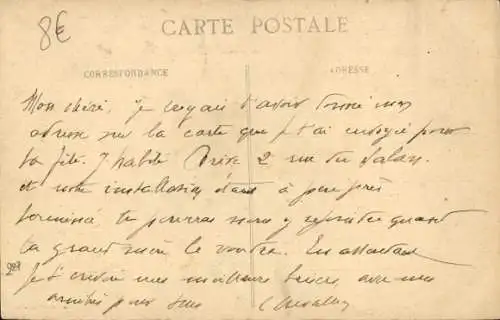 8€
CARTE POSTALE
CORRESPONDANCE
ADRESSE
Mon chéri, je croyais t'avoir donné mon
adresse sur la carte que je t'ai envoyé pour
ta fête. J'habite 2 rue du Palais.
et notre installation étant à peu près
terminée tu pourras venir y rejoindre quand
ta grand'mère le voudra. En attendant
Je t'envoie mes meilleurs baisers, avec mes
amitiés pour tous